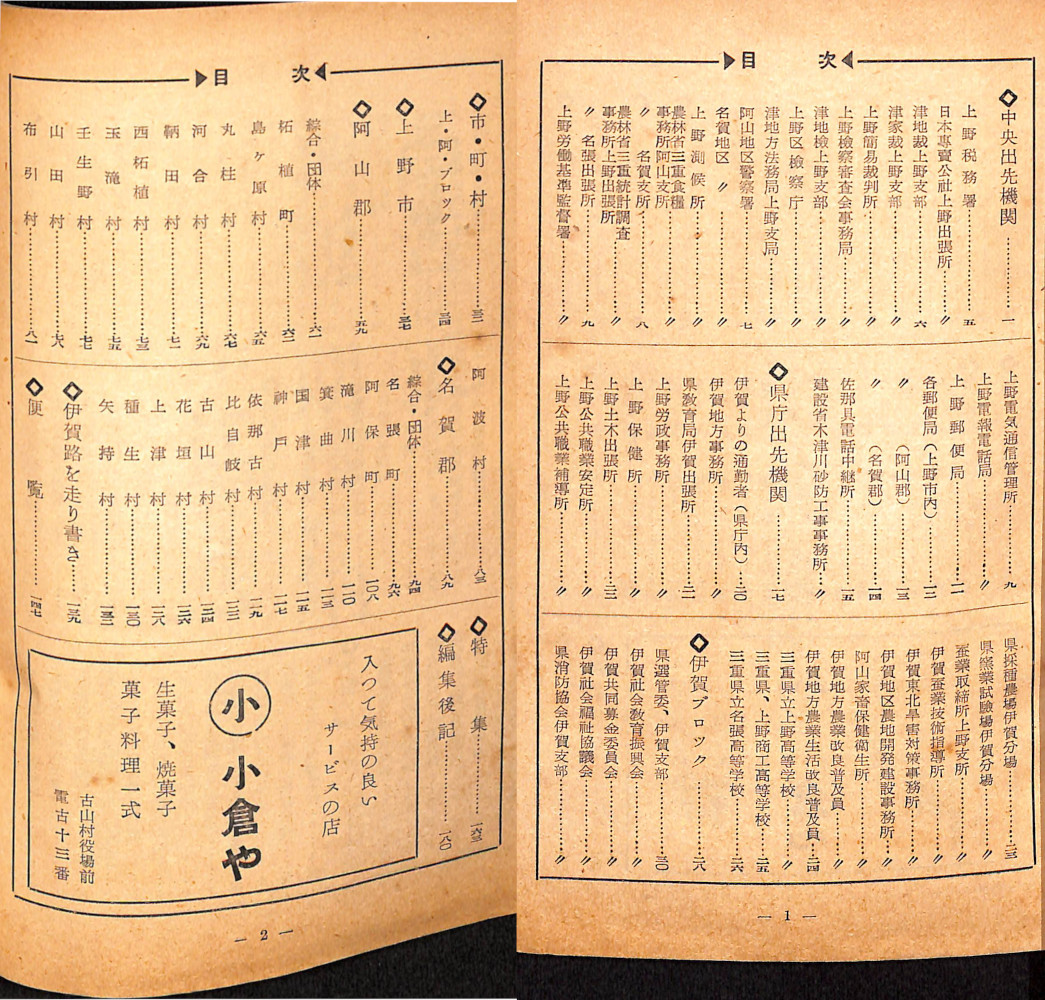 目次
◇中央出先機関………一
上野税務署………五
日本専賣公社上野出張所………〃
津地裁上野支部………六
津家裁上野支部………〃
上野簡易裁判所………〃
上野検察審査会事務局………〃
津地検上野支部………〃
上野区検察庁………〃
津地方法務局上野支局………〃
阿山地区警察署………七
名賀地区〃………〃
上野測候所………〃
農林省三重食糧事務所阿山支所………〃
〃名賀支所………八
農林省三重統計調査事務所上野出張所………〃
〃名張出張所………九
上野労働基準監督署………〃
上野電気通信管理所………九
上野電報電話局………〃
上野郵便局………一一
各郵便局(上野市内)………一二
〃(阿山郡)………一三
〃(名賀郡)………一四
佐那具電話中継所………一五
建設省木津川砂防工事事務所………〃
◇県庁出先機関………一七
伊賀よりの通勤者(県庁内)…二〇
伊賀地方事務所………〃
県教育局伊賀出張所………二一
上野労政事務所………〃
上野保健所………〃
上野土木出張所………二二
上野公共職業安定所………〃
上野公共職業補導所………〃
県採種農場伊賀分場………二三
県窯業試験場伊賀分場………〃
蚕業取締所上野支所………〃
伊賀蚕業技術指導所………〃
伊賀東北旱害対策事務所………〃
伊賀地区農地開発建設事務所………〃
阿山家畜保健衛生所………〃
伊賀地方農業改良普及員………〃
伊賀地方農業生活改良普及員…二四
三重県立上野高等学校………〃
三重県、上野商工高等学校…二五
三重県立名張高等学校………二六
◇伊賀ブロック………二八
県選管委、伊賀支部………三〇
伊賀社会教育振興会………〃
伊賀共同募金委員会………〃
伊賀社会福祉協議会………〃
県消防協会伊賀支部………〃
— 1 —
目次
◇市・町・村………三二
上・阿・ブロック………三四
◇上野市………三七
◇阿山郡………五九
綜合・団体………六一
柘植町………六二
島ヶ原村………六五
丸柱村………六七
河合村………六九
鞆田村………七一
西柘植村………七三
玉滝村………七五
壬生野村………七七
山田村………七八
布引村………八一
阿波村………八三
◇名賀郡………八九
綜合・団体………九四
名張町………九六
阿保町………一〇八
滝川村………一一〇
箕曲村………一一三
国津村………一一五
神戸村………一一七
依那古村………一一九
比自岐村………一二二
古山村………一二四
花垣村………一二六
上津村………一二八
種生村………一三〇
矢持村………一三二
◇伊賀路を走り書き………一三九
◇便覧………一四七
◇特集………一六三
◇編集後記………一八〇
入つて気持の良い
サービスの店
小 小倉や
生菓子、焼菓子
菓子料理一式
古山村役場前
電古十三番
— 2 —